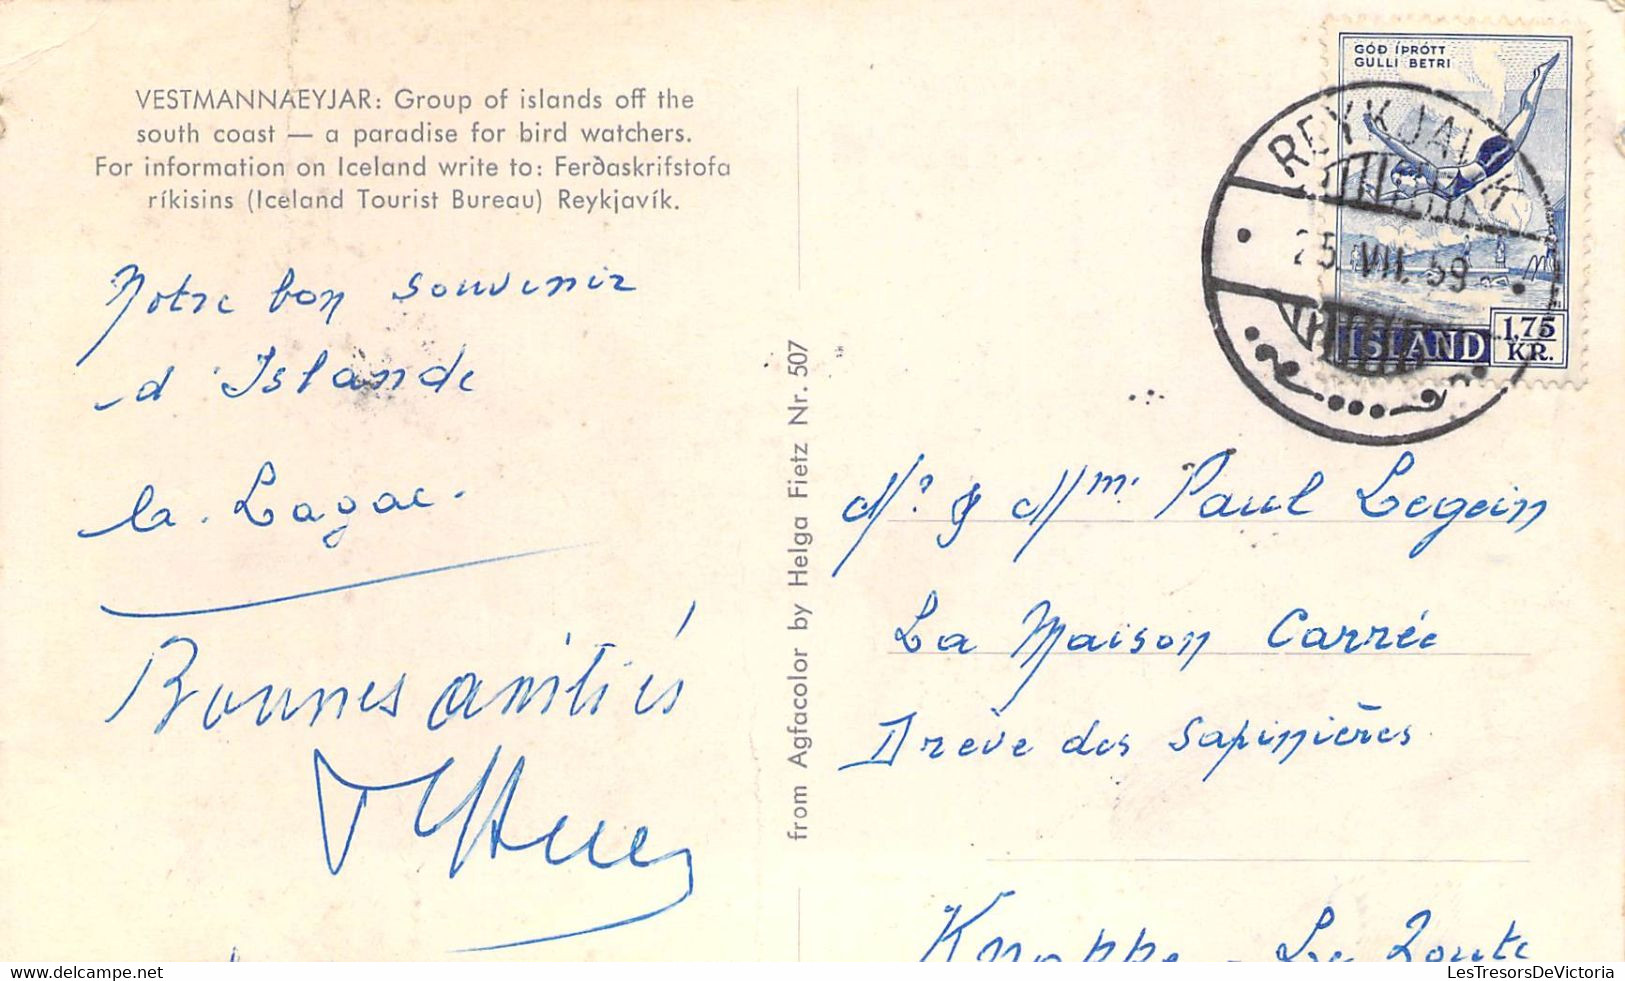 VESTMANNAEYJAR: Group of islands off the
south coast — a paradise for bird watchers.
For information on Iceland write to: Ferðaskrifstofa
ríkisins (Iceland Tourist Bureau) Reykjavík.
Notre bon souvenir
d'Islande
Bonnes amitiés
from Agfacolor by Helga Fietz Nr. 507
GÓÐ ÍÞRÓTT
GULLI BETRI
REYKJAVIK
25. VII. 59
ÍSLAND
1,75
KR.
Mr & Mme. Paul Legein
La Maison Carrée
Drève des Sapinières
Knokke - Le Zoute
LesTresorsDeVictoria